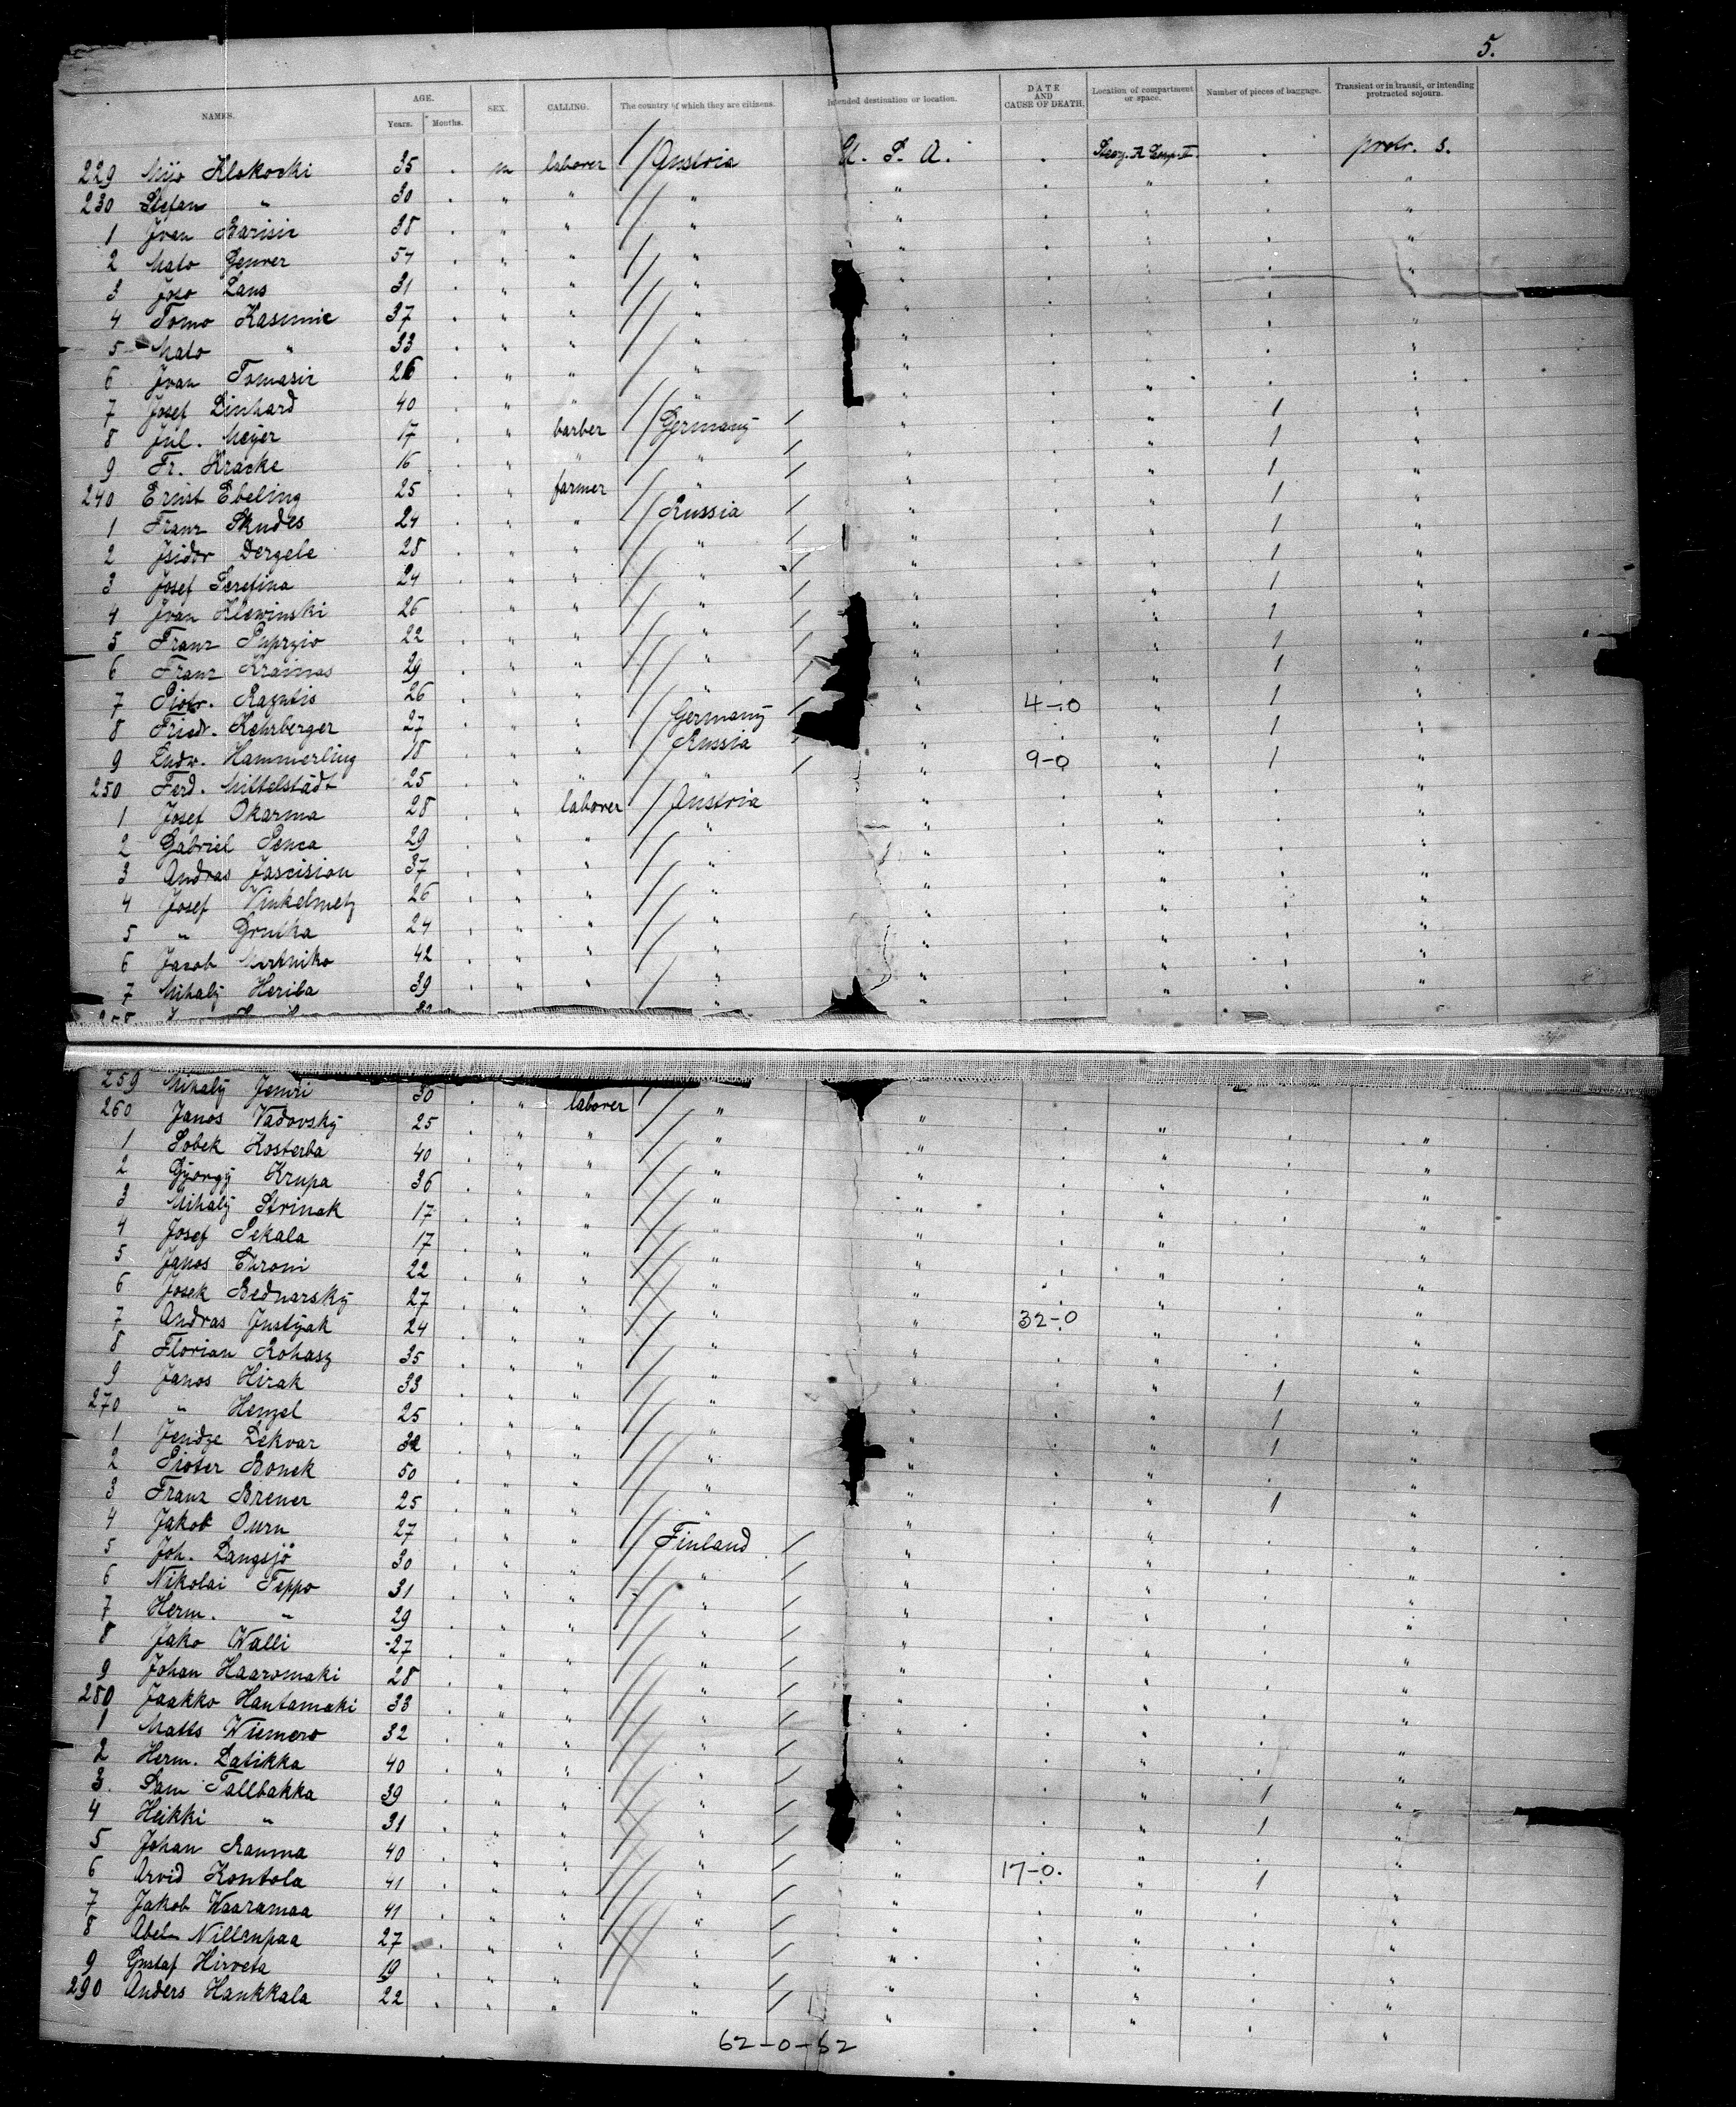 5.
NAMES. AGE. Years. Months. SEX. CALLING. The country of which they are citizens. Intended destination or location. DATE AND CAUSE OF DEATH. Location of compartment or space. Number of pieces of baggage. Transient or in transit, or intending protracted sojourn.
229 Mijo Klokocki 35 . m laborer // Austria U. S. A. . . protr. s.
230 Stefan " 30 . " " // " " . " . "
1 Ivan Barisic 38 . " " // " " . " . "
2 Mato Denver 54 . " " // " " . " . "
3 Joso Lans 31 . " " // " . " . "
4 Tomo Kasumic 37 . " " // " . " . "
5 Mato " 33 . " " // " " . " . "
6 Ivan Tomasic 26 . " " // " " . " . "
7 Josef Linhard 40 . " " // " " . " 1 "
8 Jul. Meyer 17 . " barber // Germany / " . " 1 "
9 Fr. Kracke 16 . " " // " / " . " 1 "
240 Ernst Ebeling 25 . " farmer // " / " . " 1 "
1 Franz Skudes 24 . " " // Russia / " . " 1 "
2 Isidor Dergele 28 . " " // " / " . " 1 "
3 Josef Serefina 24 . " " // " / " . " 1 "
4 Ivan Klewinski 26 . " " // " / " . " 1 "
5 Franz 22 . " " // " / " . " 1 "
6 Franz Krainas 29 . " " // " / " . " 1 "
7 Piotr. Ragutis 26 . " " // " / 4-0 " 1 "
8 Friedr. Kehrberger 27 . " " // Germany / " . " 1 "
9 Ludw. Hammerling 18 . " " // Russia / " 9-0 " 1 "
250 Ferd. Mittelstädt 25 . " " // " / " . " . "
1 Josef Okarma 28 . " laborer // Austria " . " . "
2 Gabriel Senca 29 . " " // " " . " . "
3 Andras Jascision 37 . " " // " " . " . "
4 Josef Vinkelmetz 26 . " " // " " . " . "
5 " Grutka 24 . " " // " " . " . "
6 Jacob 42 . " " // " " . " . "
7 Mihaly Herila 39 . " " // " " . " . "
258
259 Mihaly Jemri 30 . " laborer // " " . " . "
260 Janos Vadovsky 25 . " " // " " . " . "
1 Sobek Kosterba 40 . " " // " " . " . "
2 György Krupa 36 . " " // " " . " . "
3 Mihaly Strinak 17 . " " // " " . " . "
4 Josef Sekala 17 . " " // " " . " . "
5 Janos Chromi 22 . " " // " " . " . "
6 Josek Bednarsky 27 . " " // " " . " . "
7 Andras Justyak 24 . " " // " " 32-0 " . "
8 Florian Rohasz 35 . " " // " " . " . "
9 Janos Hirak 33 . " " // " " . " 1 "
270 " Henzel 25 . " " // " " . " 1 "
1 Jendze Lekvar 32 . " " // " " . " 1 "
2 Pioter Bonek 50 . " " // " " . " . "
3 Franz Brener 25 . " " // " " . " 1 "
4 Jakob Ouru 27 . " " // Finland / " . " . "
5 Joh. Langsjö 30 . " " // " / " . " . "
6 Nikolai Teppo 31 . " " // " / " . " . "
7 Herm. " 29 . " " // " / " . " . "
8 Jako Walli 27 . " " // " / " . " . "
9 Johan Haaromaki 28 . " " // " / " . " . "
280 Jaakko Hautamaki 33 . " " // " / " . " . "
1 Matts Wiemero 32 . " " // " / " . " . "
2 Herm. Latikka 40 . " " // " / " . " . "
3. Sam Tallbakka 39 . " " // " / " . " 1 "
4 Heikki " 31 . " " // " / " . " 1 "
5 Johan Rauma 40 . " " // " / " . " . "
6 Arvid Kontola 41 . " " // " / " 17-0. " 1 "
7 Jakob Waaramaa 41 . " " // " / " . " . "
8 Abel Nillrupaa 27 . " " // " / " . " . "
9 Gustaf Hirveta 19 . " " // " / " . " . "
290 Anders Hankkala 22 . " " // " / " . " . "
62-0-62